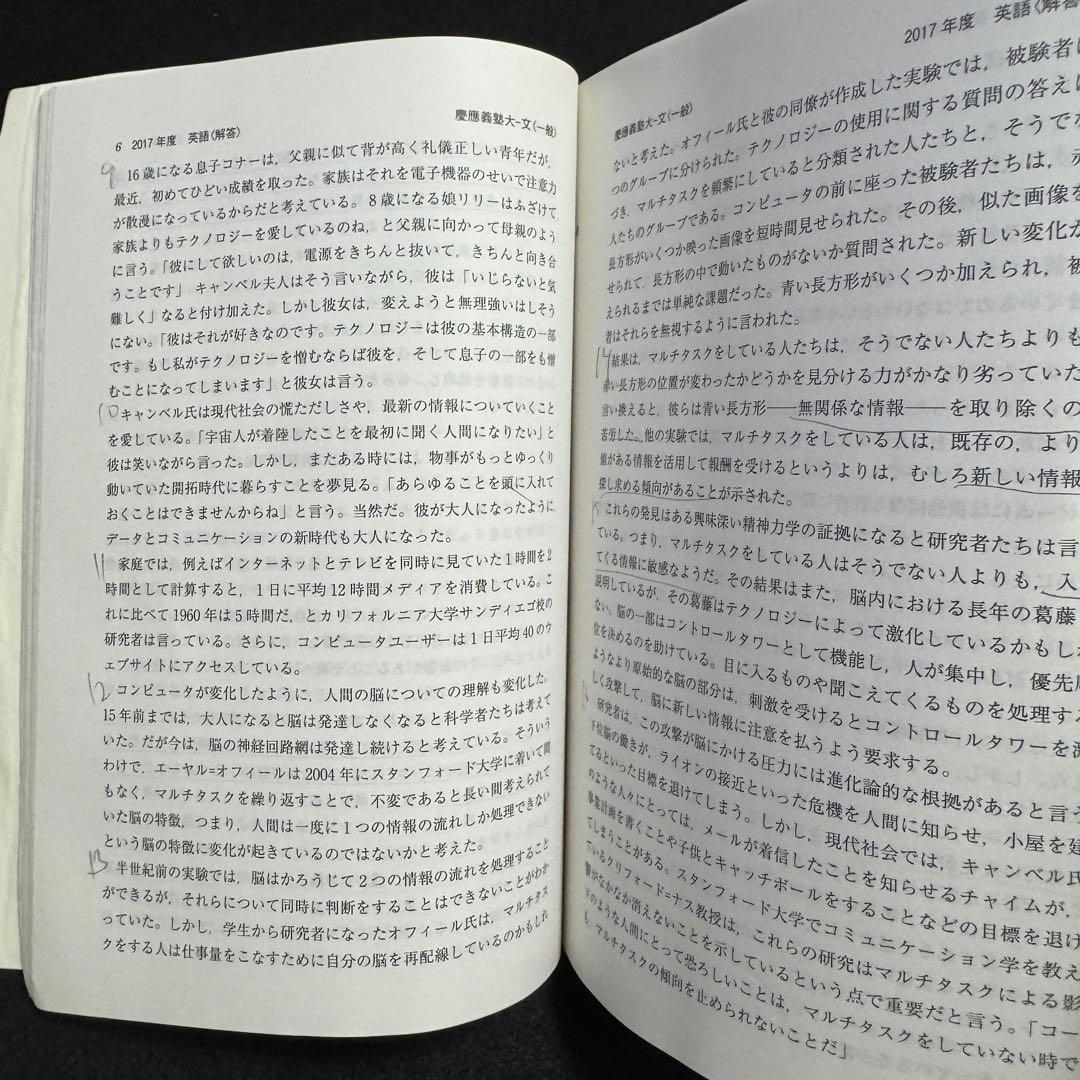 6 2017年度 英語〈解答〉
慶應義塾大-文(一般)
9
16歳になる息子コナーは，父親に似て背が高く礼儀正しい青年だが，
最近，初めてひどい成績を取った。家族はそれを電子機器のせいで注意力
が散漫になっているからだと考えている。8歳になる娘リリーはふざけて，
家族よりもテクノロジーを愛しているのね，と父親に向かって母親のよう
に言う。「彼にして欲しいのは，電源をきちんと抜いて，きちんと向き合
うことです」キャンベル夫人はそう言いながら，彼は「いじらないと気
難しく」なると付け加えた。しかし彼女は，変えようと無理強いはしそう
にない。「彼はそれが好きなのです。テクノロジーは彼の基本構造の一部
です。もし私がテクノロジーを憎むならば彼を，そして息子の一部をも憎
むことになってしまいます」と彼女は言う。
10
キャンベル氏は現代社会の慌ただしさや，最新の情報についていくこと
を愛している。「宇宙人が着陸したことを最初に聞く人間になりたい」と
彼は笑いながら言った。しかし，またある時には，物事がもっとゆっくり
動いていた開拓時代に暮らすことを夢見る。「あらゆることを頭に入れて
おくことはできませんからね」と言う。当然だ。彼が大人になったように，
データとコミュニケーションの新時代も大人になった。
11
家庭では，例えばインターネットとテレビを同時に見ていた1時間を2
時間として計算すると，1日に平均12時間メディアを消費している。こ
れに比べて1960年は5時間だ，とカリフォルニア大学サンディエゴ校の
研究者は言っている。さらに，コンピュータユーザーは1日平均40のウ
ェブサイトにアクセスしている。
12
コンピュータが変化したように，人間の脳についての理解も変化した。
15年前までは，大人になると脳は発達しなくなると科学者たちは考えて
いた。だが今は，脳の神経回路網は発達し続けると考えている。そういう
わけで，エーヤル=オフィールは2004年にスタンフォード大学に着いて間
もなく，マルチタスクを繰り返すことで，不変であると長い間考えられて
いた脳の特徴，つまり，人間は一度に1つの情報の流れしか処理できない
という脳の特徴に変化が起きているのではないかと考えた。
13
半世紀前の実験では，脳はかろうじて2つの情報の流れを処理すること
ができるが，それらについて同時に判断をすることはできないことがわか
っていた。しかし，学生から研究者になったオフィール氏は，マルチタス
クをする人は仕事量をこなすために自分の脳を再配線しているのかもしれ
2017年度 英語〈解答
慶應義塾大-文(一般)
ないと考えた。オフィール氏と彼の同僚が作成した実験では，被験者は
つのグループに分けられた。テクノロジーの使用に関する質問の答えに
づき，マルチタスクを頻繁にしていると分類された人たちと，そうでない
人たちのグループである。コンピュータの前に座った被験者たちは，赤
長方形がいくつか映った画像を短時間見せられた。その後，似た画像を
せられて，長方形の中で動いたものがないか質問された。新しい変化が
えられるまでは単純な課題だった。青い長方形がいくつか加えられ，被
者はそれらを無視するように言われた。
14
結果は，マルチタスクをしている人たちは，そうでない人たちよりも
赤い長方形の位置が変わったかどうかを見分ける力がかなり劣っていた
言い換えると，彼らは青い長方形――無関係な情報――を取り除くの
苦労した。他の実験では，マルチタスクをしている人は，既存の，より
値がある情報を活用して報酬を受けるというよりは，むしろ新しい情報
探し求める傾向があることが示された。
これらの発見はある興味深い精神力学の証拠になると研究者たちは言
ている。つまり，マルチタスクをしている人はそうでない人よりも，入
てくる情報に敏感なようだ。その結果はまた，脳内における長年の葛藤
説明しているが，その葛藤はテクノロジーによって激化しているかもし
ない。脳の一部はコントロールタワーとして機能し，人が集中し，優先順
位を決めるのを助けている。目に入るものや聞こえてくるものを処理する
ようなより原始的な脳の部分は，刺激を受けるとコントロールタワーを激
しく攻撃して，脳に新しい情報に注意を払うよう要求する。
研究者は，この攻撃が脳にかける圧力には進化論的な根拠があると言う
下位脳の働きが，ライオンの接近といった危機を人間に知らせ，小屋を建
てるといった目標を退けてしまう。しかし，現代社会では，キャンベル氏
のような人々にとっては，メールが着信したことを知らせるチャイムが，
事業計画を書くことや子供とキャッチボールをすることなどの目標を退け
てしまうことがある。スタンフォード大学でコミュニケーション学を教え
ているクリフォード=ナス教授は，これらの研究はマルチタスクによる影
響がなかなか消えないことを示しているという点で重要だと言う。「コー
のような人間にとって恐ろしいことは，マルチタスクをしていない時で
マルチタスクの傾向を止められないことだ」